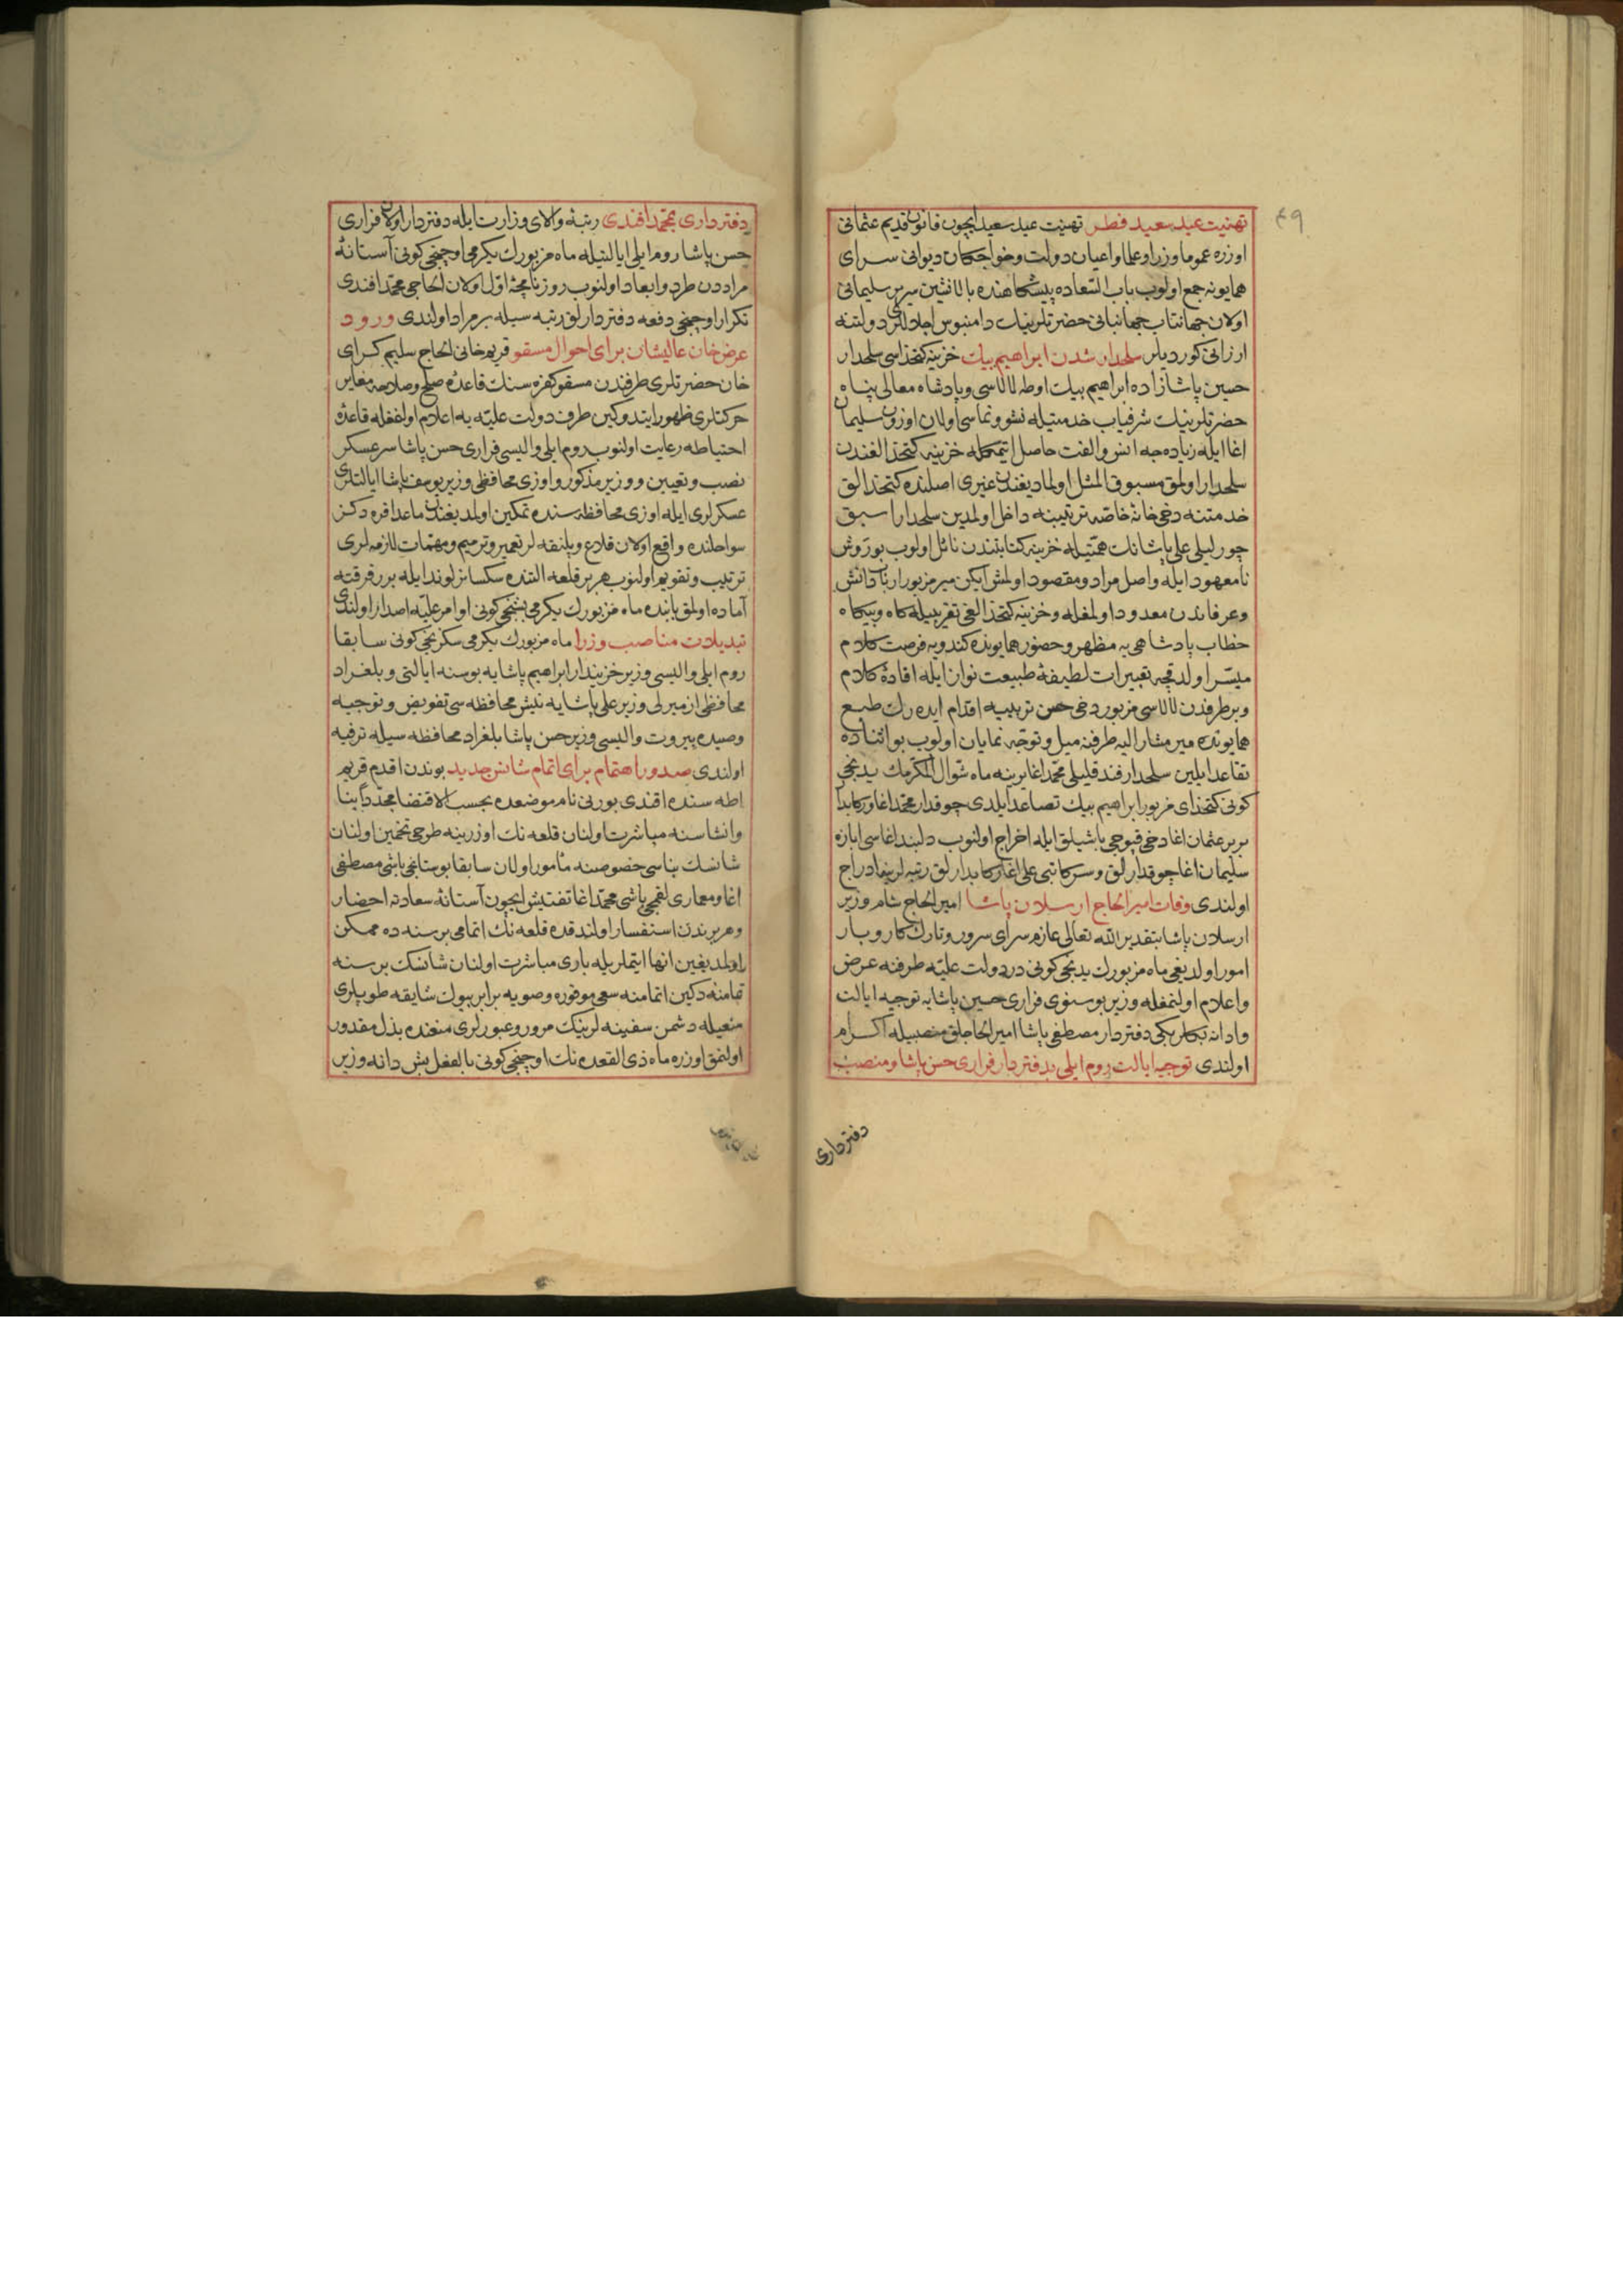 ٤٩
تهنيت عيد سعيد فطر تهنيت عيد سعيد ايچون قانون قديم عثمانى
اوزره عموما وزرا و علما و اعيان دولت و خواجكان ديوانى سراى
همايونه جمع اولوب باب السعاده پيشكاهنده بالانشين سرير سليمانى
اولان جهانتاب جهانبانى حضرتلرينك دامنبوس اجلاللرى دولتنه
ارزانى كورديلر سلحدار شدن ابراهيم بيك خزينه كتخداسى سلحدار
حسين پاشازاده ابراهيم بيك اوطه لالاسى و پادشاه معالى پناه
حضرتلرينك شرفياب خدمتيله نشو و نماسى اولان اوزون سليمان
اغا ايله زياده جه انس و الفت حاصل ايتمكله خزينه كتخدالغندن
سلحدار اولمق مسبوق المثل اولماديغندن غيرى اصلنده كتخدالق
خدمتنه دخى خانهٔ خاصه ترتيبنه داخل اولمدين سلحدار اسبق
چورليلى على پاشانك همتيله خزينه كتابتندن نائل اولوب بو روش
نامعهود ايله واصل مراد و مقصود اولمش ايكن مير مزبور ارباب دانش
و عرفاندن معدود اولمغله و خزينه كتخدالغى تقريبيله كاه و بيكاه
خطاب پادشاهى يه مظهر و حضور همايونده كندويه فرصت كلام
ميسر اولدقچه تعبيرات لطيفهٔ طبيعت نواز ايله افادهٔ كلام
و بر طرفدن لالاسى مزبور دخى حسن تربيه اقدام ايده رك طبع
همايونده مير مشار اليه طرفنه ميل و توجه نمايان اولوب بو اثناده
تقاعد ايلين سلحدار فندقليلى محمد اغا يرينه ماه شوال المكرمك يدنجى
كونى كتخداى مزبور ابراهيم بيك تصاعد ايلدى چوقدار محمد اغا و ركابدار
بربر عثمان اغا دخى قپوجى باشيلق ايله اخراج اولنوب دلبند اغاسى ابازه
سليمان اغا چوقدارلق و سركاتبى على اغا ركابدارلق رتبه لرينه ادراج
اولندى وفات امير الحاج ارسلان پاشا امير الحاج شام وزير
ارسلان پاشا بتقدير الله تعالى عازم سراى سرور و تارك كار و بار
امور اولديغى ماه مزبورك يدنجى كونى در دولت عليّه طرفنه عرض
و اعلام اولنمغله وزير بوسنوى فرارى حسين پاشايه توجيه ايالت
و ادانه بكلربكى دفتردار مصطفى پاشا امير الحاجلق منصبيله اكرام
اولندى توجيه ايالت روم ايلى بدفتردار فرارى حسن پاشا و منصب
دفتردارى
دفتردارى بمحمد افندى رتبهٔ والاى وزارت ايله دفتردار اولان فرارى
حسن پاشا روم ايلى ايالتيله ماه مزبورك يكرمى اوچنجى كونى آستانهٔ
مراددن طرد و ابعاد اولنوب روزنامچهٔ اول اولان الحاجى محمد افندى
تكرار اوچنجى دفعه دفتردارلق رتبه سيله برمراد اولندى ورود
عرض خان عاليشان براى احوال مسقو قريم خانى الحاج سليم كراى
خان حضرتلرى طرفندن مسقو كفره سنك قاعدهٔ صلح و صلاحه مغاير
حركتلرى ظهور ايتدوكين طرف دولت عليّه يه اعلام اولنمغله قاعدهٔ
احتياطه رعايت اولنوب روم ايلى واليسى فرارى حسن پاشا سرعسكر
نصب و تعيين و وزير مذكور و اوزى محافظى وزير يوسف پاشا ايالتلرى
عسكرلرى ايله اوزى محافظه سنده تمكين اولمديغندن ماعدا قره دكز
سواحلنده واقع اولان قلاع و پلنقه لر تعمير و ترميم و مهمات لازمه لرى
ترتيب و تقويم اولنوب هر بر قلعه التنده سكسانر لوند ايله برر فرقته
آماده اولمق بابنده ماه مزبورك يكرمى بشنجى كونى اوامر عليّه اصدار اولندى
تبديلات مناصب وزرا ماه مزبورك يكرمى سكزنجى كونى سابقا
روم ايلى واليسى وزير خزينه دار ابراهيم پاشايه بوسنه ايالتى و بلغراد
محافظى ازميرلى وزير على پاشايه نيش محافظه سى تفويض و توجيه
و صيده بيروت واليسى وزير حسن پاشا بلغراد محافظه سيله ترفيه
اولندى صدور اهتمام براى اتمام شانس جديد بوندن اقدم قريم
اطه سنده اقندى بورنى نام موضعده بحسب الاقتضا مجددا بنا
و انشاسنه مباشرت اولنان قلعه نك اوزرينه طرحى تخمين اولنان
شانسك بناسى خصوصنه مأمور اولان سابقا بوستانجى باشى مصطفى
اغا و معمارى لغمجى باشى محمد اغا تفتيش ايچون آستانهٔ سعادته احضار
و هر برندن استفسار اولندقده قلعه نك اتمامى بر سنه ده ممكن
اولمديغين انها ايتملريله بارى مباشرت اولنان شانسك بر سنه
تمامنه دكين اتمامنه سعى موفوره و صويه برابر بيوك شايقه طوپلرى
منعيله دشمن سفينه لرينك مرور و عبورلرى منعنده بذل مقدور
اولنمق اوزره ماه ذى القعده نك اوچنجى كونى بالفعل بش دانه وزير